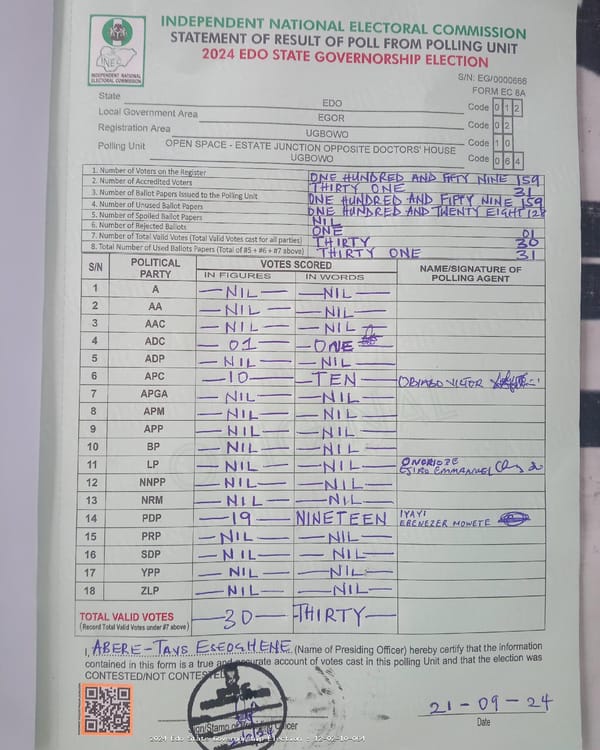 INDEPENDENT NATIONAL ELECTORAL COMMISSION
STATEMENT OF RESULT OF POLL FROM POLLING UNIT
2024 EDO STATE GOVERNORSHIP ELECTION
INEC
INDEPENDENT NATIONAL
ELECTORAL COMMISSION
S/N: EG/0000666
FORM EC 8A
State EDO Code 0 1 2
Local Government Area EGOR Code 0 2
Registration Area UGBOWO Code 1 0
Polling Unit OPEN SPACE - ESTATE JUNCTION OPPOSITE DOCTORS' HOUSE
UGBOWO Code 0 6 4
1. Number of Voters on the Register ONE HUNDRED AND FIFTY NINE 159
2. Number of Accredited Voters THIRTY ONE 31
3. Number of Ballot Papers Issued to the Polling Unit ONE HUNDRED AND FIFTY NINE 159
4. Number of Unused Ballot Papers ONE HUNDRED AND TWENTY EIGHT 128
5. Number of Spoiled Ballot Papers NIL
6. Number of Rejected Ballots ONE 01
7. Number of Total Valid Votes (Total Valid Votes cast for all parties) THIRTY 30
8. Total Number of Used Ballots Papers (Total of #5 + #6 + #7 above) THIRTY ONE 31
S/N POLITICAL PARTY VOTES SCORED NAME/SIGNATURE OF POLLING AGENT
IN FIGURES IN WORDS
1 A NIL NIL
2 AA NIL NIL
3 AAC NIL NIL
4 ADC 01 ONE
5 ADP NIL NIL
6 APC 10 TEN VICTOR
7 APGA NIL NIL
8 APM NIL NIL
9 APP NIL NIL
10 BP NIL NIL
11 LP NIL NIL EMMANUEL
12 NNPP NIL NIL
13 NRM NIL NIL
14 PDP 19 NINETEEN IYAYI
EBENEZER MOWETE
15 PRP NIL NIL
16 SDP NIL NIL
17 YPP NIL NIL
18 ZLP NIL NIL
TOTAL VALID VOTES 30 THIRTY
(Record Total Valid Votes under #7 above)
I, ABERE-TAVS ESEOGHENE (Name of Presiding Officer) hereby certify that the information
contained in this form is a true and accurate account of votes cast in this polling Unit and that the election was
CONTESTED/NOT CONTESTED
Sign/Stamp of Officer
21-09-24
Date
2024 Edo State Governorship Election - 12-02-10-064